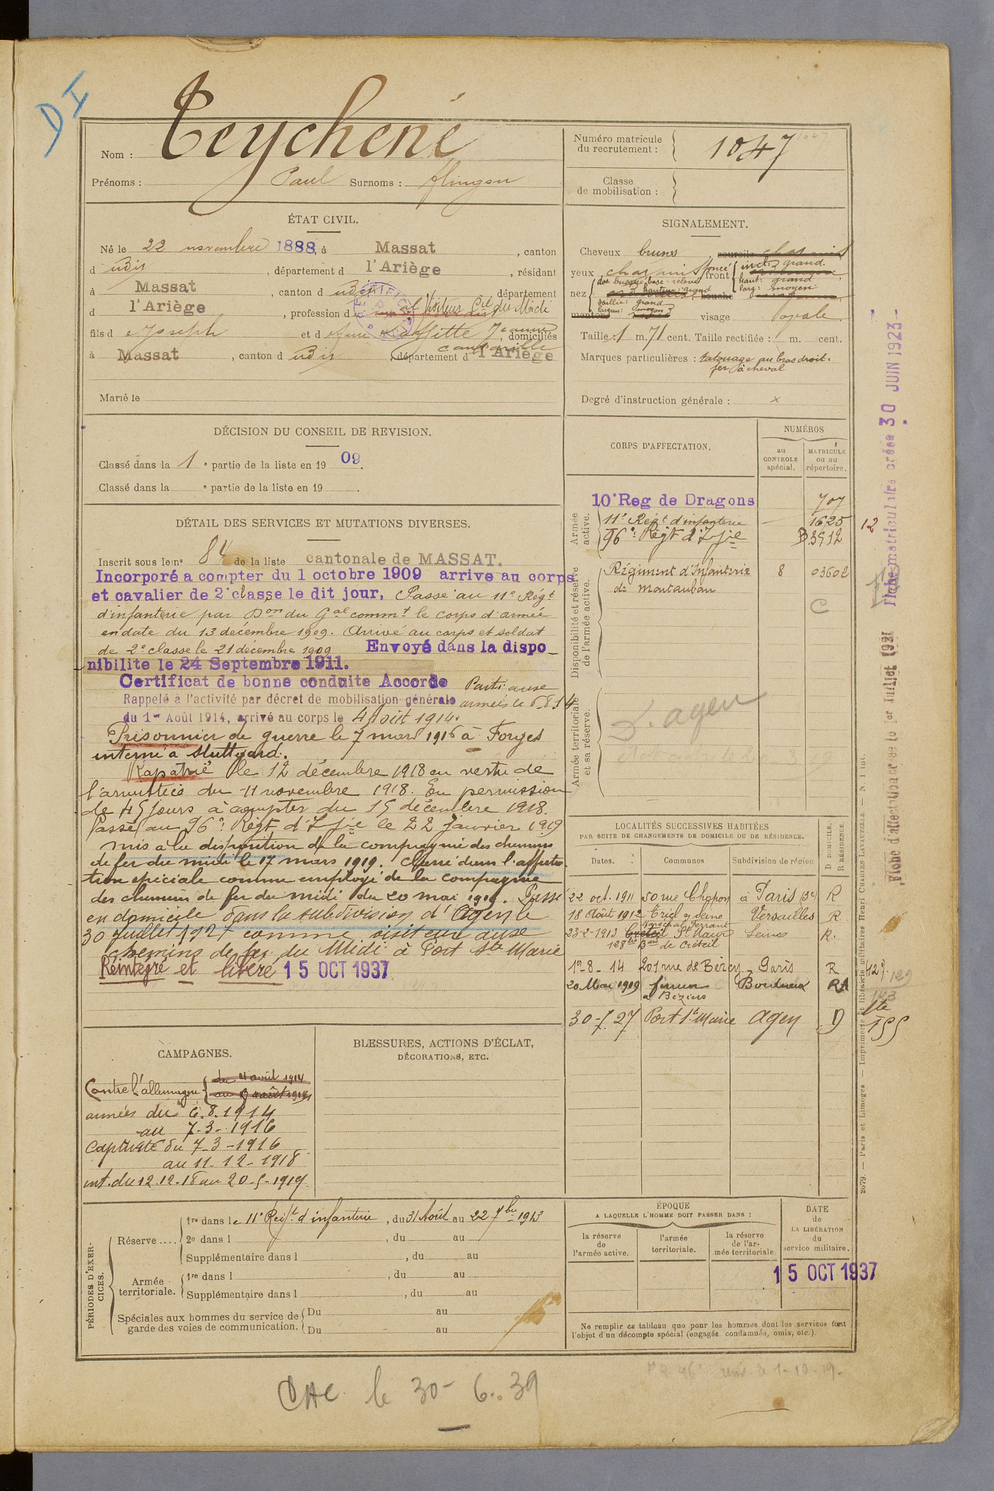 DI
Nom : Teychené
Prénoms : Paul Surnoms :
Numéro matricule du recrutement : 1047
Classe de mobilisation :
ÉTAT CIVIL.
Né le 22 novembre 1888, à Massat, canton
d udit, département d l'Ariège, résidant
à Massat, canton d udit, département
d l'Ariège, profession d
fils d e Joseph et d Laffitte Jeanne, domiciliés
à Massat, canton d udit, département d l'Ariège
Marié le
SIGNALEMENT.
Cheveux bruns
yeux chatains foncé front
nez
menton visage ovale
Taille : 1 m. 71 cent. Taille rectifiée : m. cent.
Marques particulières : tatouage au bras droit.
fer à cheval
Degré d'instruction générale : x
DÉCISION DU CONSEIL DE REVISION.
Classé dans la 1e partie de la liste en 1909.
Classé dans la e partie de la liste en 19
CORPS D'AFFECTATION.
NUMÉROS
au CONTROLE spécial.
MATRICULE ou au répertoire.
Armée active.
10e Reg de Dragons 707
11e Régt d'infanterie 1625
96e Régt d'Inf ie 3912
Disponibilité et réserve de l'armée active.
Régiment d'Infanterie 8 03602
de Montauban
C
Armée territoriale et sa réserve.
D. agen
DÉTAIL DES SERVICES ET MUTATIONS DIVERSES.
Inscrit sous le no 84 de la liste cantonale de MASSAT.
Incorporé a compter du 1 octobre 1909 arrive au corps
et cavalier de 2e classe le dit jour, Passé au 11e Régt
d'infanterie par Don du Gal commt le corps d'armée
en date du 13 décembre 1909. Arrivé au corps et soldat
de 2e classe le 21 décembre 1909 Envoyé dans la dispo_
nibilite le 24 Septembre 1911.
Certificat de bonne conduite Accordé Parti aux
Rappelé à l'activité par décret de mobilisation générale armées le 6 8 14
du 1er Août 1914, arrivé au corps le 4 Août 1914.
Prisonnier de guerre le 7 mars 1916 à Forges
interné à Stuttgard.
Rapatrié le 12 décembre 1918 en vertu de
l'armistice du 11 novembre 1918. En permission
de 45 jours à compter du 15 décembre 1918.
Passé au 96e Régt d'Inf ie le 22 Janvier 1919
mis à la disposition de la compagnie des chemins
de fer du midi le 17 mars 1919. Classé dans l'affecta-
tion spéciale comme employé de la compagnie
des chemins de fer du midi du 20 mai 1919. Passé
en domicile dans la subdivision d'Agen le
30 Juillet 1927 comme visiteur aux
chemins de fer du Midi à Port Ste Marie
Réintégré et libéré 15 OCT 1937
LOCALITÉS SUCCESSIVES HABITÉES
PAR SUITE DE CHANGEMENTS DE DOMICILE OU DE RÉSIDENCE.
Dates. Communes Subdivision de région D DOMICILE. R RÉSIDENCE.
22 oct. 1911 50 rue Chopon à Paris R
18 Août 1912 Triel s/ Seine Versailles R
23-2-1913 St Maur Seine R.
128 Bd de Créteil
1-8-14 201 rue de Bercy Paris R
20 Mai 1919 Bordeaux R
à Béziers
30-7-27 Port Ste Marie Agen D
CAMPAGNES.
Contre l'allemagne du 4 août 1914
armées du 6.8.1914
au 7-3-1916
Captivité du 7-3-1916
au 11-12-1918
int. du 12.12.18 au 20-5-1919
BLESSURES, ACTIONS D'ÉCLAT,
DÉCORATIONS, ETC.
PÉRIODES D'EXERCICES.
Réserve.... 1re dans le 11e Régt d'infanterie, du 31 Août au 22 7bre 1913
2e dans l , du au
Supplémentaire dans l , du au
Armée territoriale. 1re dans l , du au
Supplémentaire dans l , du au
Spéciales aux hommes du service de garde des voies de communication. Du au
Du au
ÉPOQUE
A LAQUELLE L'HOMME DOIT PASSER DANS :
la réserve de l'armée active.
l'armée territoriale.
la réserve de l'armée territoriale
DATE de LA LIBÉRATION du service militaire.
15 OCT 1937
Ne remplir ce tableau que pour les hommes dont les services font
l'objet d'un décompte spécial (engagés, condamnés, omis, etc.).
Fiche matriculaire créée 30 JUIN 1923
Fiche d'affectation créée le 1er Juillet 1931
2079. — Paris et Limoges. — Imprimerie et librairie militaires Henri CHARLES-LAVAUZELLE.
le 30-6.39